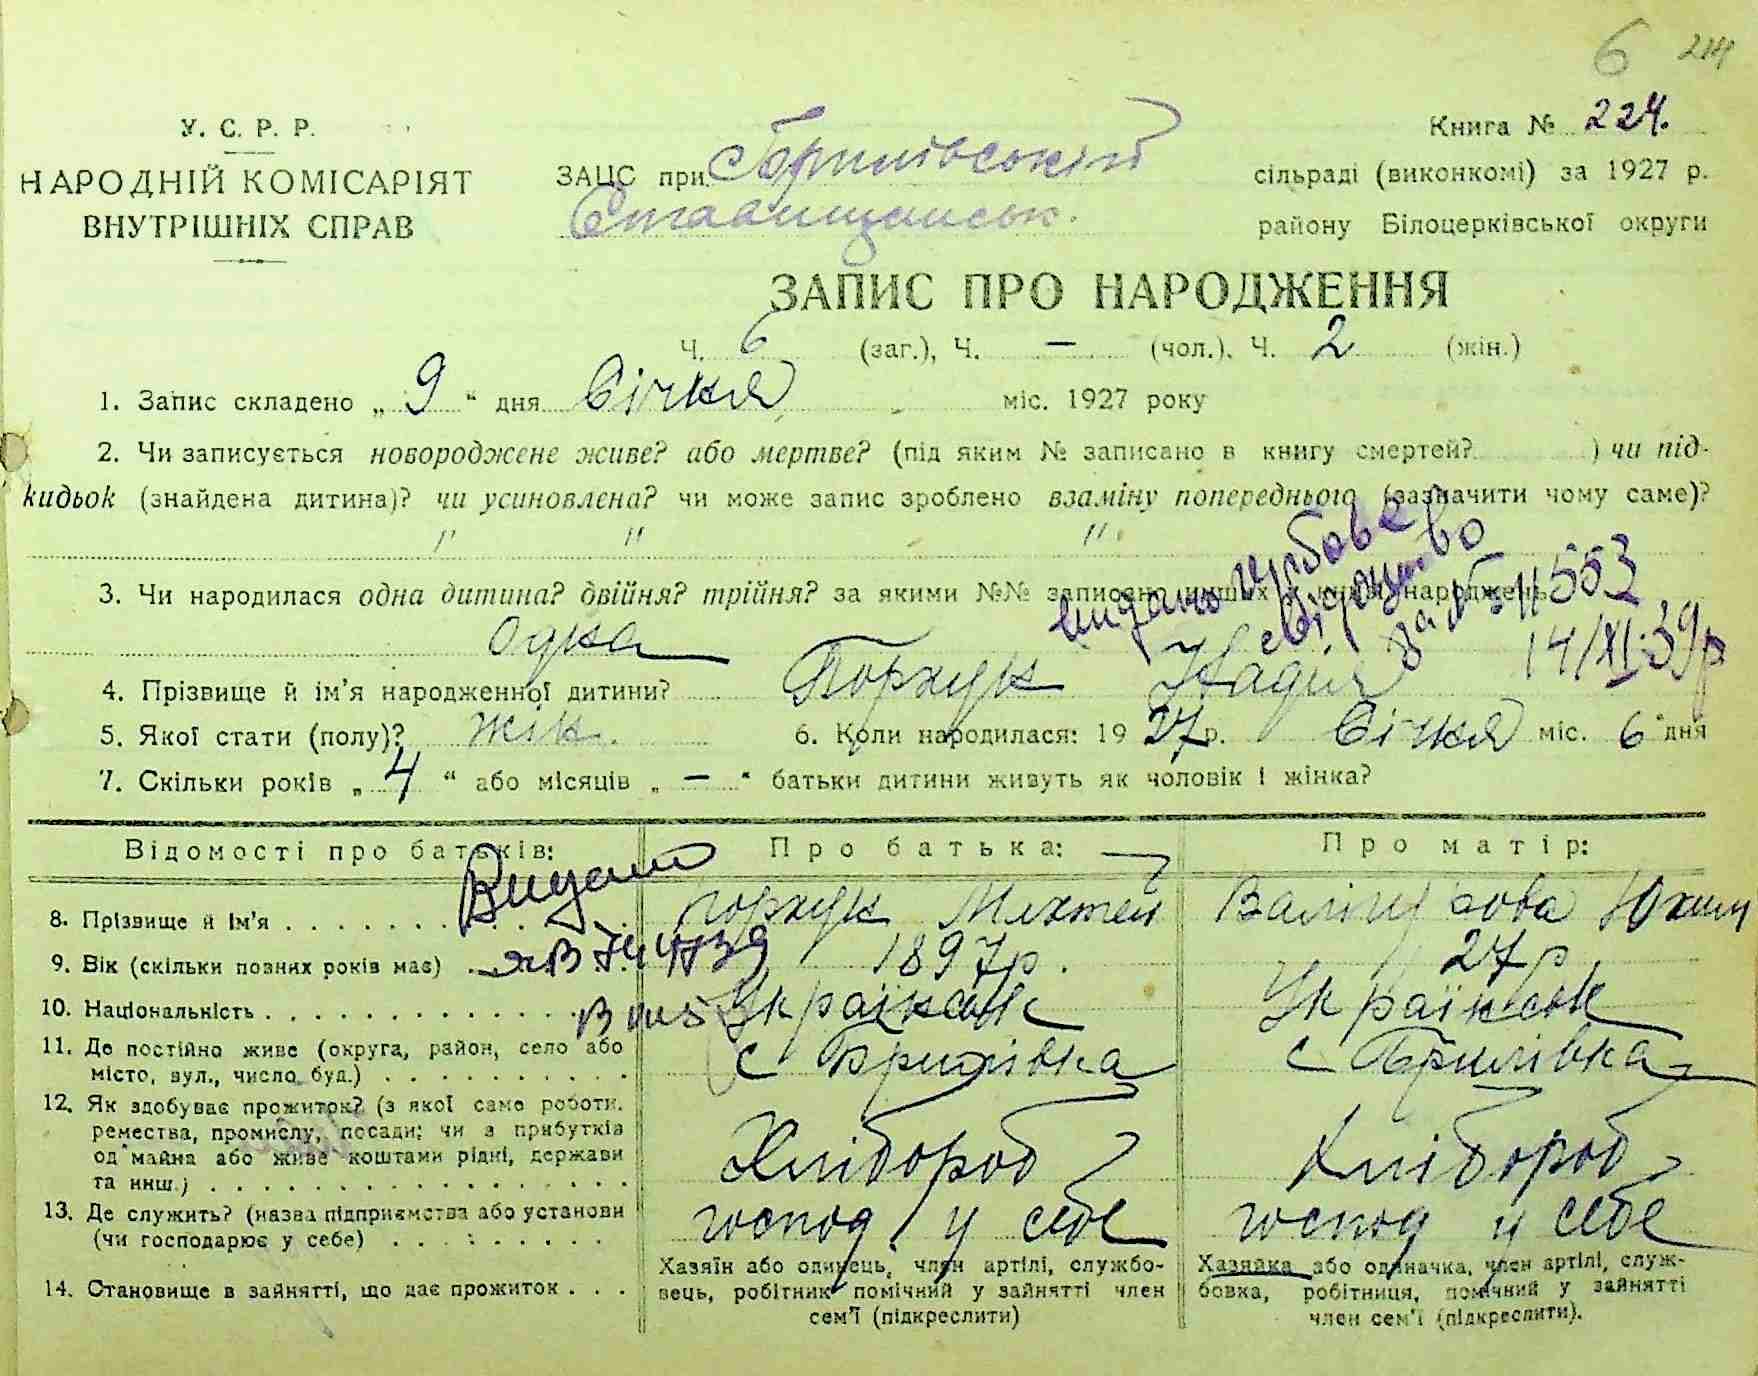 6 214
У. С. Р. Р.
НАРОДНІЙ КОМІСАРІЯТ
ВНУТРІШНІХ СПРАВ
Книга № 224.
ЗАЦС при Брилівській сільраді (виконкомі) за 1927 р.
Ставищанськ. району Білоцерківської округи
ЗАПИС ПРО НАРОДЖЕННЯ
Ч. 6 (заг.), Ч. — (чол.), Ч. 2 (жін.)
1. Запис складено „ 9 “ дня Січня міс. 1927 року
2. Чи записується новороджене живе? або мертве? (під яким № записано в книгу смертей? ) чи під-
кидьок (знайдена дитина)? чи усиновлена? чи може запис зроблено взаміну попереднього (зазначити чому саме)?
" " "
3. Чи народилася одна дитина? двійня? трійня? за якими №№ записано инших в книгу народжень
одна
видано гербове
свідоцтво
за № 11553
14/XI-39р
4. Прізвище й ім'я народженної дитини? Порхун Надія
5. Якої стати (полу)? жін. 6. Коли народилася: 19 27 р. Січня міс. 6 дня
7. Скільки років „ 4 “ або місяців „ — “ батьки дитини живуть як чоловік і жінка?
Відомості про батьків: Про батька: Про матір:
Видано
8. Прізвище й ім'я . . . . . . . . Порхун Мехтей
9. Вік (скільки повних років має) . . 1897р. 27 р
10. Національність . . . . . . . . . . . . Українськ Українськ
11. Де постійно живе (округа, район, село або
місто, вул., число буд.) . . . . . . . . . . с Брилівка с Брилівка
12. Як здобуває прожиток? (з якої саме роботи,
ремества, промислу, посади; чи з прибутків
од майна або живе коштами рідні, держави
та инш.) . . . . . . . . . . . . . . . . . . Хлібороб Хлібороб
13. Де служить? (назва підприємства або установи
(чи господарює у себе) . . . . . . . . . . господ. у себе господ у себе
14. Становище в зайнятті, що дає прожиток . . .
Хазяїн або одинець, член артілі, службо-
вець, робітник помічний у зайнятті член
сем'ї (підкреслити)
Хазяйка або одиначка, член артілі, служ-
бовка, робітниця, помічний у зайнятті
член сем'ї (підкреслити).